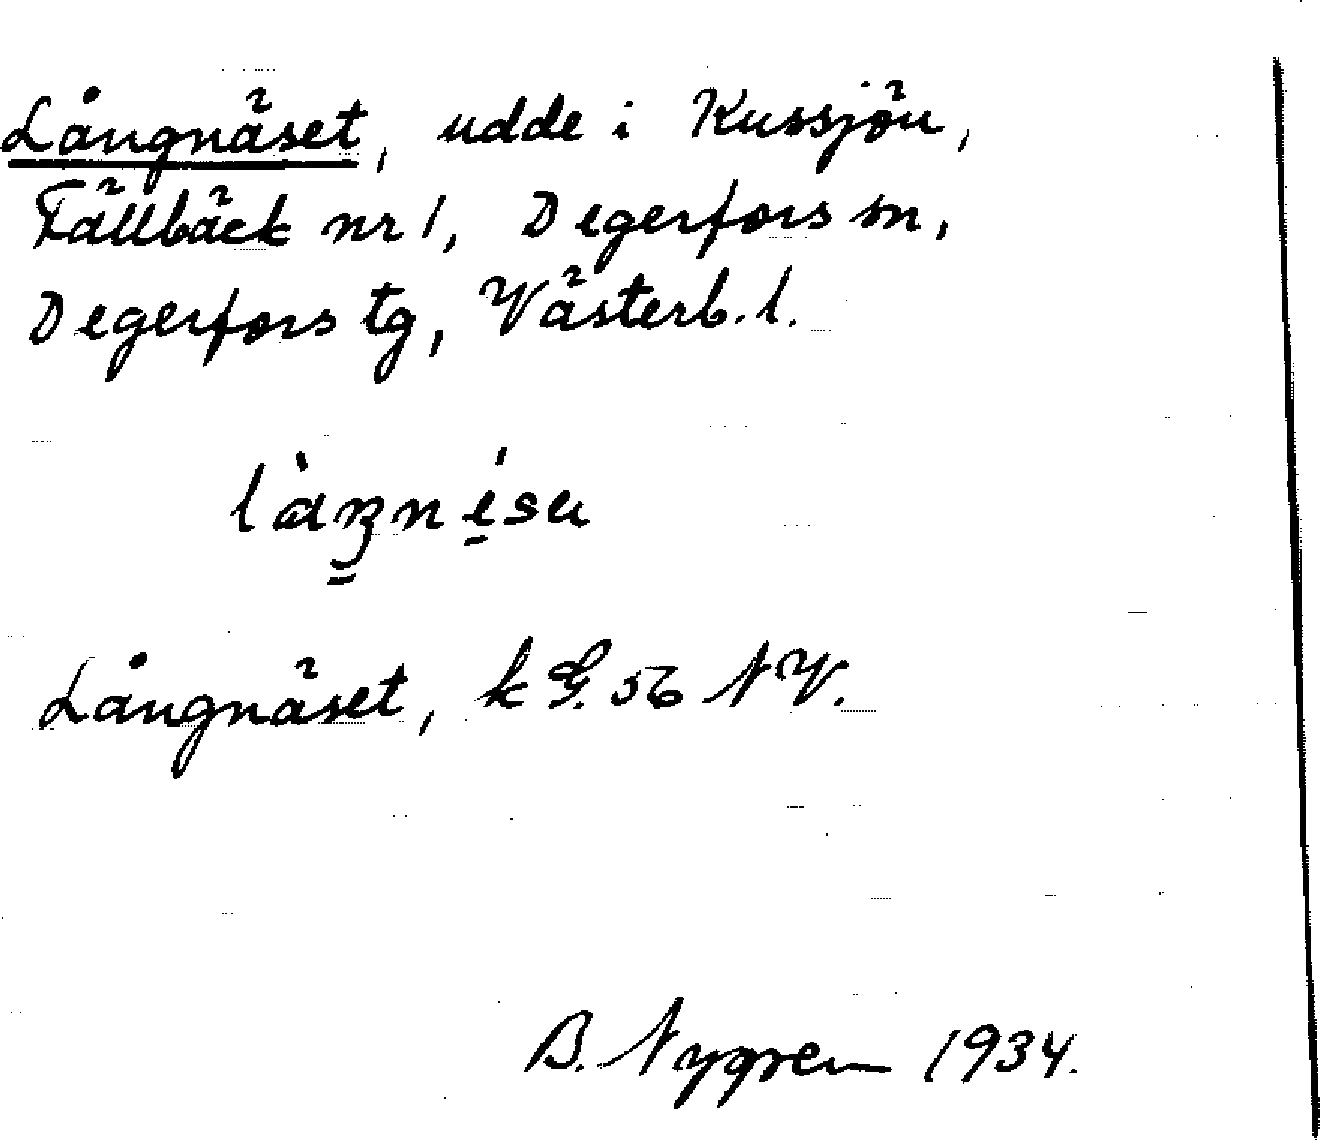 Långnäset, udde i Kussjön,
Fällbäck nr 1, Degerfors sn,
Degerfors tg, Västerb. l.
Långnäset, k G. 56 NV.
B. Nygren 1934.